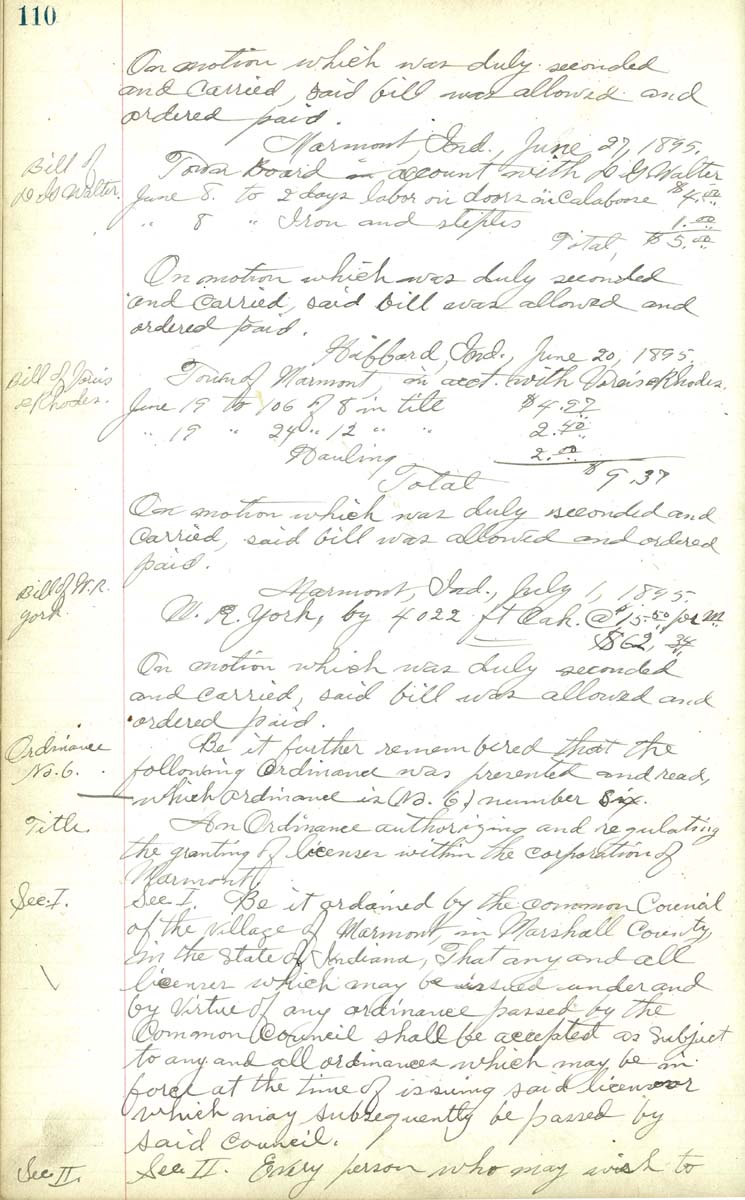 110
On motion which was duly seconded
and carried, said bill was allowed and
ordered paid.
Marmont, Ind., June 27, 1895.
Bill of
D. G. Walter.
Town Board in account with D. G. Walter
June 8. to 2 days labor on doors in Calaboose $4.00
" 8 " Iron and steples 1.00
Total, $5.00
On motion which was duly seconded
and carried, said bill was allowed and
ordered paid.
Hibbard, Ind., June 20, 1895.
Bill of Voris
& Rhodes.
Town of Marmont, in acct. with Voreis & Rhodes.
June 19 to 106 of 8 in tile $4.97
" 19 " 24 " 12 " " 2.40
Hauling 2.00
Total $9.37
On motion which was duly seconded and
carried, said bill was allowed and ordered
paid.
Bill of W. R.
York.
Marmont, Ind., July 1, 1895.
W. R. York, by 4022 ft Oak. @ $15.50 per M
$62.34
On motion which was duly seconded
and carried, said bill was allowed and
ordered paid.
Ordinance
No. 6.
Be it further remembered that the
following Ordinance was presented and read,
which Ordinance is (No. 6) number Six.
Title.
An Ordinance authorizing and regulating
the granting of licenses within the corporation of
Marmont.
Sec. I.
Sec. I. Be it ordained by the common Council
of the village of Marmont in Marshall County,
in the State of Indiana, That any and all
licenses which may be issued under and
by Virtue of any ordinance passed by the
Common Council shall be accepted as Subject
to any and all ordinances which may be in
force at the time of issuing said licens or
which may subsequently be passed by
said council.
Sec. II.
Sec. II. Every person who may wish to